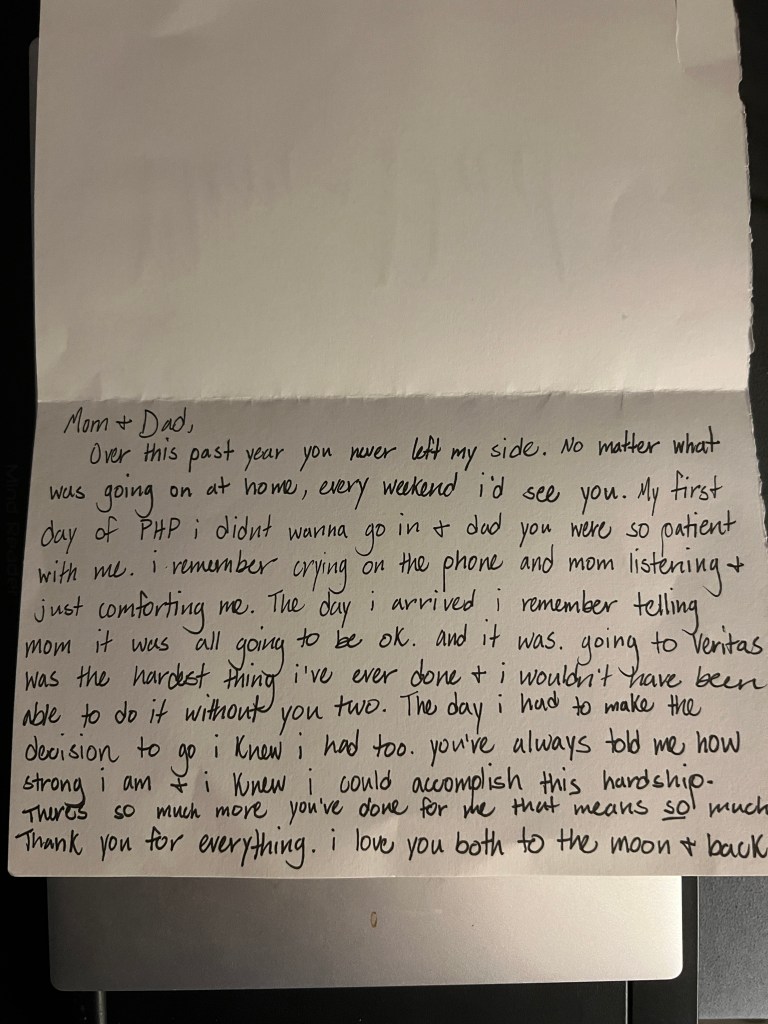 Mom + Dad,
Over this past year you never left my side. No matter what
was going on at home, every weekend i'd see you. My first
day of PHP i didnt wanna go in + dad you were so patient
with me. i remember crying on the phone and mom listening +
just comforting me. The day i arrived i remember telling
mom it was all going to be ok. and it was. going to Veritas
was the hardest thing i've ever done + i wouldn't have been
able to do it without you two. The day i had to make the
decision to go i knew i had too. you've always told me how
strong i am + i knew i could accomplish this hardship.
Theres so much more you've done for me that means so much
Thank you for everything. i love you both to the moon + back